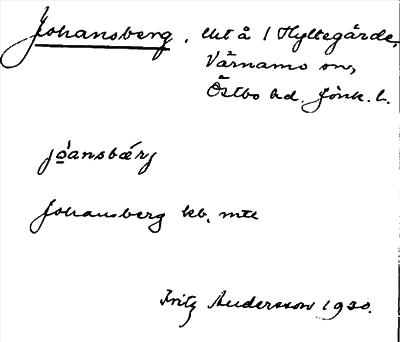 Johansberg, lht å 1 Hyltegärde,
Värnamo sn,
Östbo hd. Jönk. l.
jo̱ansbærj
Johansberg kb, mtl
Fritz Andersson 1930.